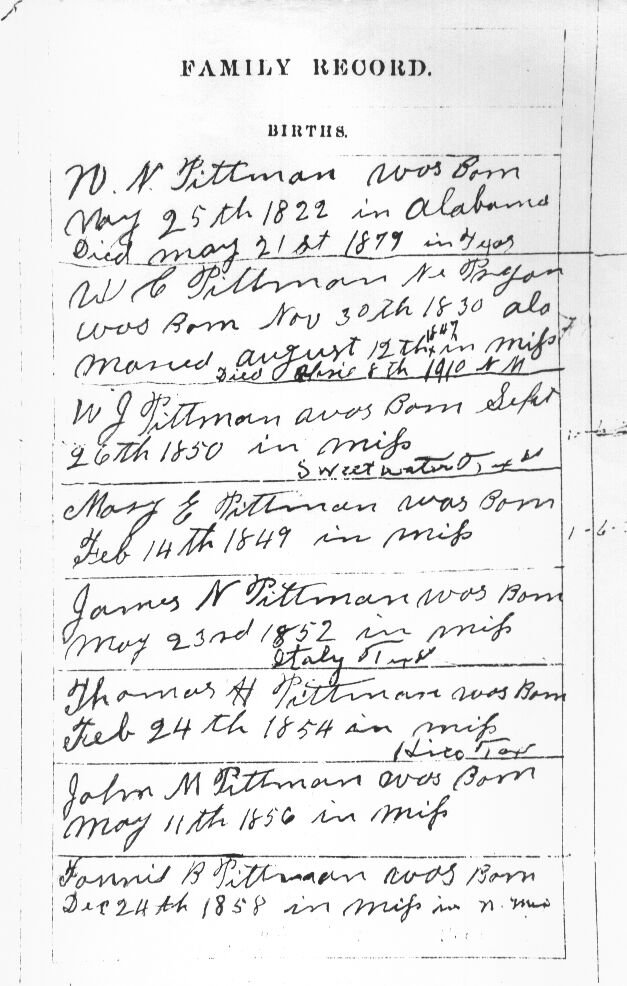 FAMILY RECORD.
BIRTHS.
W. N. Pittman was Born
May 25th 1822 in Alabama
Died May 21st 1879 in Texas
W E Pittman Ne Pryor
was Born Nov 30th 1830 ala
Maried august 12th 1847 in Miss
Died 8th 1910 N M
W J Pittman was Born Sept
26th 1850 in Miss
Sweetwater Texas
Mary E Pittman was Born
Feb 14th 1849 in Miss
James N Pittman was Born
May 23rd 1852 in Miss
Italy Texas
Thomas H Pittman was Born
Feb 24th 1854 in Miss
Hico Tex
John M Pittman was Born
May 11th 1856 in Miss
Fannie B Pittman was Born
Dec 24th 1858 in Miss in N. Mex